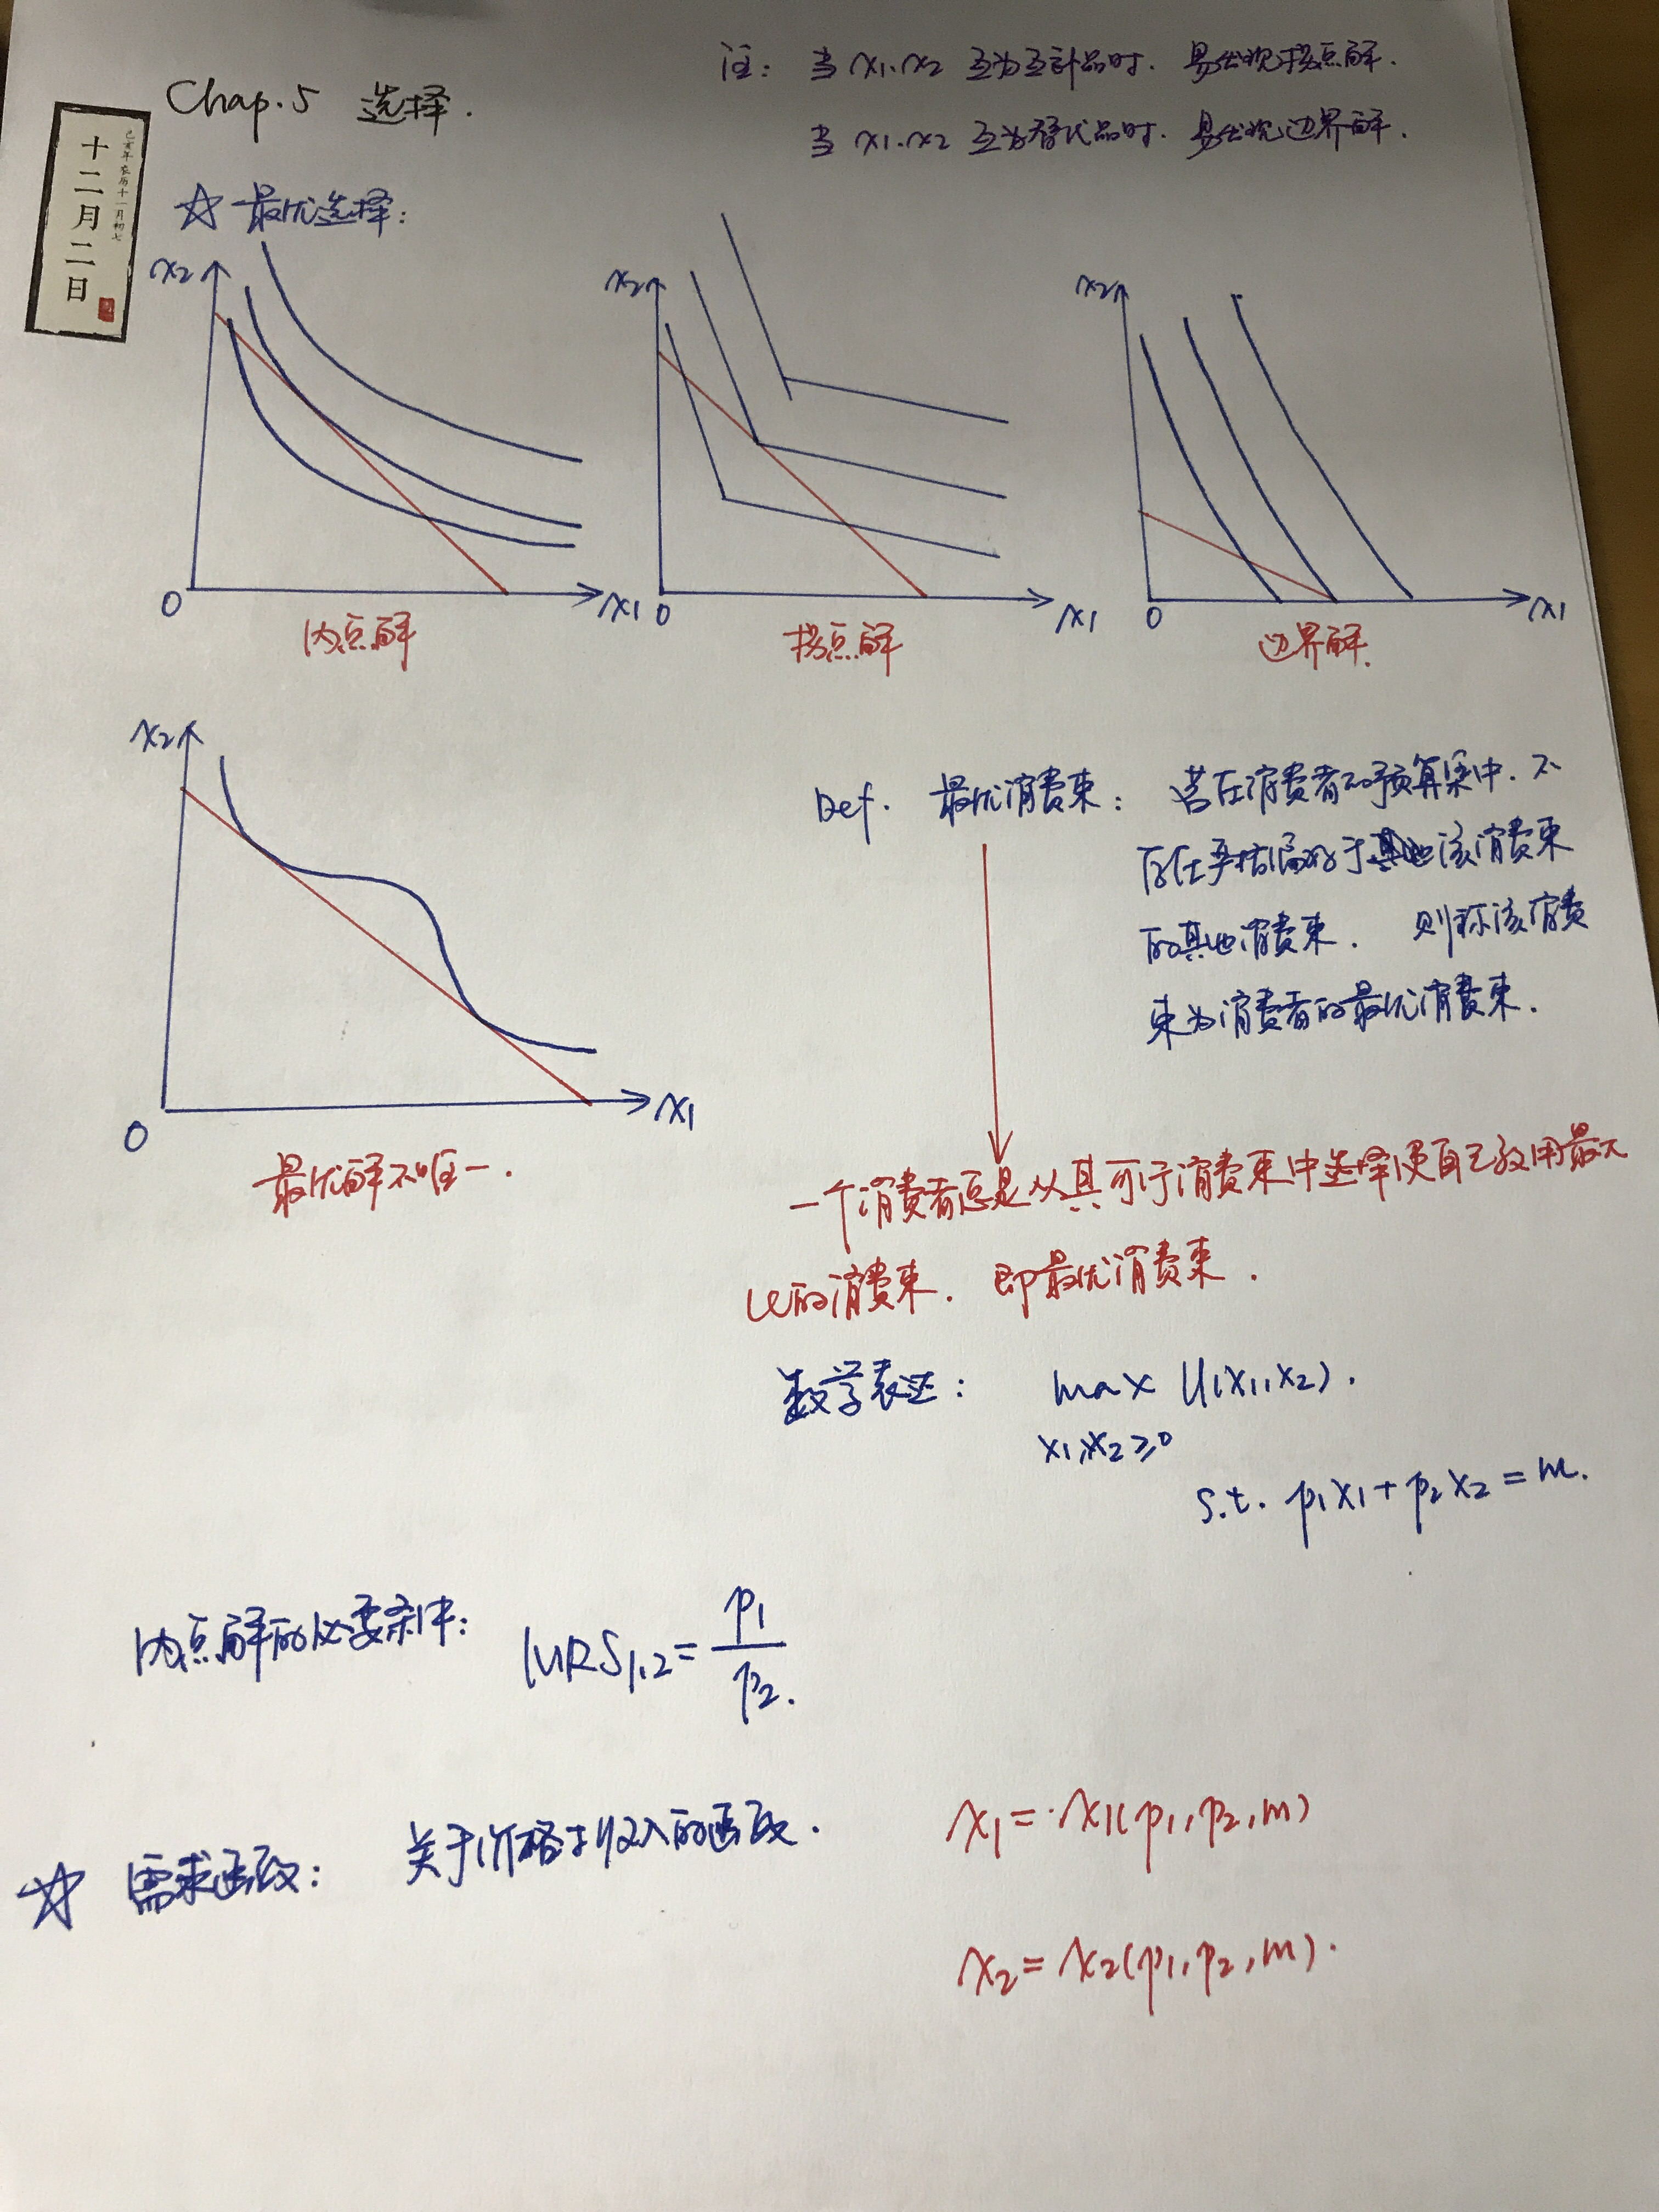 注：当 x1.x2 互为互补品时. 易出现拐点解.
当 x1.x2 互为替代品时. 易出现边界解.
Chap.5 选择.
十二月二日
己亥年 农历十一月初七
☆ 最优选择：
x2
O
x1
内点解
x2
0
x1
拐点解
x2
0
x1
边界解.
x2
O
x1
最优解不唯一.
Def. 最优消费束： 若在消费者的预算集中. 不
存在严格偏好于该消费束
的其他消费束. 则称该消费
束为消费者的最优消费束.
一个消费者总是从其可行消费束中选择使自己效用最大
化的消费束. 即最优消费束.
数学表述： max U(x1,x2).
x1,x2≥0
s.t. p1x1+p2x2=m.
内点解的必要条件： MRS1,2=p1/p2.
☆ 需求函数： 关于价格与收入的函数.
x1=x1(p1,p2,m)
x2=x2(p1,p2,m).